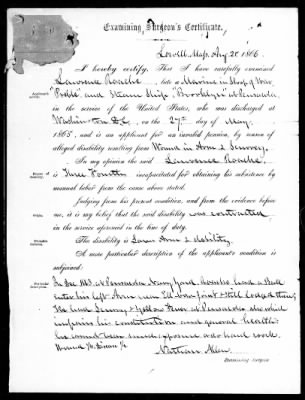 Examining Surgeon's Certificate.
Lowell, Mass. Aug 20 1866
I hereby certify, That I have carefully examined
Lawrence Roache, late a Marine in Sloop of War
"Preble" and Steam Ship "Brooklyn" at Pensacola
in the service of the United States, who was discharged at
Washington D.C. on the 27th day of May
1865 and is an applicant for an invalid pension, by reason of
alleged disability resulting from Wound in Arm & Scurvy.
In my opinion the said Lawrence Roache
is Three Fourths incapacitated for obtaining his subsistence by
manual labor from the cause above stated.
Judging from his present condition, and from the evidence before
me, it is my belief that the said disability was contracted
in the service aforesaid in the line of duty.
The disability is Lame Arm & debility.
A more particular description of the applicant's condition is
subjoined:
at Pensacola Navy Yard Roache had a Ball
enter his left Arm near Elbow joint & still lodged there;
He had Scurvy & Yellow Fever at Pensacola also which
impairs his constitution and general health
he cannot bear much exposure & do hard work.
Nathan Allen
Examining Surgeon.